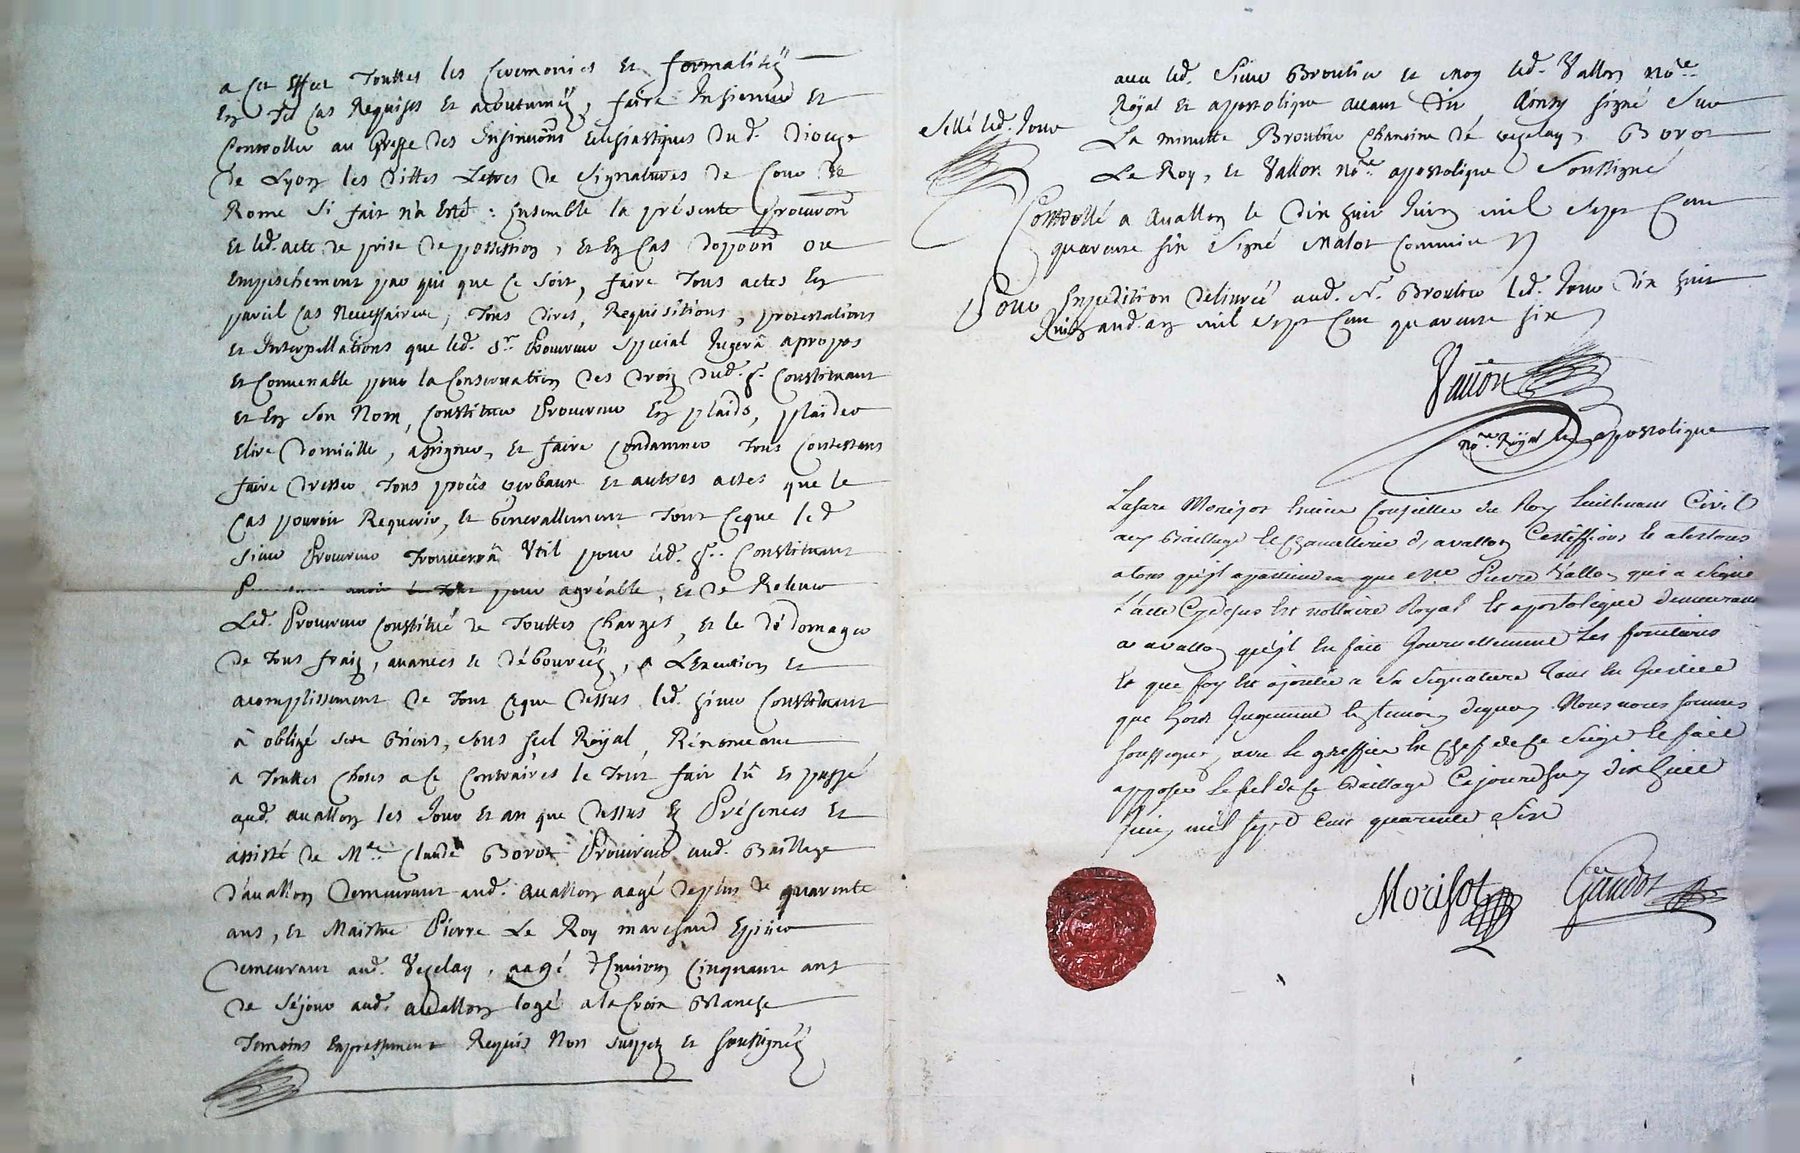 a Cet Effect Touttes les Ceremonies Et formalitéz
En tel cas Requises Et acoutuméz, faire Insinuer Et
Controller au Greffe des Insinuâons Eclesiastiques dud. Diocze
de Lyon les dittes Lettres de Signatures de Cour de
Rome si fait n'a Esté : Ensemble la présente Procurôn
Et led. acte de prise de possession, Et En Cas d'oppoôn ou
Empeschement par qui que Ce soit, faire Tous actes En
pareil Cas Necessaires, Tous dires, Requisitions, protestations
et Interpellations que led. Sr. Procureur Special Jugerâ apropos
Et Convenable pour la Conservation des droiz dud. Sr. Constituant
et En son Nom, Constituer Procureur En plaids, plaider
Elire Domicille, assigner, Et faire Condamner Tous Contestans
faire Dresser Tous procês verbaux Et autres actes que le
Cas pouroit Requerir, Et Generallement Tout Ceque led
Sieur Procureur Trouverrâ Util pour led. Sr. Constituant
pour agréable, Et de Relever
Led. Procureur Constitué de Touttes Charges, Et le dédomager
de Tous fraiz, avances Et débourséz, a L'Execution Et
acomplissement de Tout Ceque Dessus led. Sieur Constituant
â obligé ses Biens, sous scel Roÿal, Rénonceant
a Touttes Choses a Ce Contraires le Tout fait lû Et passé
aud. avallon les Jour Et an que Dessus En Présences Et
assisté de Me. Claude Borot Procureur aud. Baillage
d'avallon Demeurant aud. avallon aagé deplus de quarente
ans, Et Maistre Pierre Le Roy marchand Epicier
Demeurant aud. Vezelay, aagé d'Environ Cinquante ans
de séjour aud. avallon logé a la Croix Blanche
Temoins Expressement Requis Non suspez Et soussignéz
avec led. Sieur Broutier et Moy led. Vallon Nore.
Roÿal Et apostolique avant Dit Ainsy signé Sur
La minutte Broutier Chanoine dé vezelay, Borot
Le Roy, Et Vallon Nore. apostolique Soussigné
Sellé led. Jour
Controllé a Avallon le Dix huit Juin mil Sept Cent
quarente six Signé Malot Commis
Pour Expedition délivréé aud. Sr. Broutier led. Jour Dix huit
Juin aud. an mil Sept Cent quarente six
Vallon
nore. Roÿal Et appostolique
Lazare Morizot Ecuier Conseiller du Roy Lieutenant Civil
au Baillage Et Chancellerie d'avallon Certiffions Et atestons
atous qu'il apartiendra que Me Pierre Vallon qui a signé
L'acte Cydessus Est nottaire Royal Et apostolique demeurant
a avallon qu'il En fait Journellement Les fonctions
Et que foy Est ajoutée a Sa Signature Tant En Justice
que hors Jugement En Temoin dequoy Nous nous sommes
soussignés avec le greffier En Chef de Ce Siege Et fait
apposer Le scel de Ce Baillage Cejourdhuy dix huit
Juin mil sept Cent quarente Six
Morisot
Gaudot